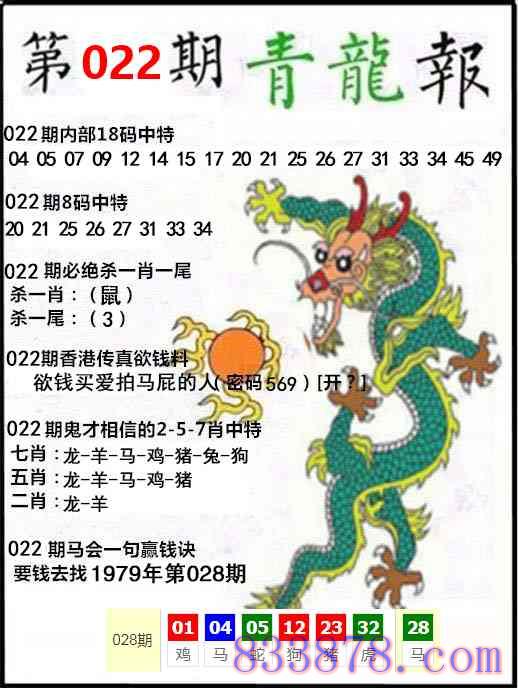 第022期青龍報
022期内部18码中特
04 05 07 09 12 14 15 17 20 21 25 26 27 31 33 34 45 49
022期8码中特
20 21 25 26 27 31 33 34
022 期必绝杀一肖一尾
杀一肖：（鼠）
杀一尾：（3）
022期香港传真欲钱料
欲钱买爱拍马屁的人（密码569）[开？]
022期鬼才相信的2-5-7肖中特
七肖：龙-羊-马-鸡-猪-兔-狗
五肖：龙-羊-马-鸡-猪
二肖：龙-羊
022 期马会一句赢钱诀
要钱去找1979年第028期
028期 01 04 05 12 23 32 28
鸡 马 蛇 狗 猪 虎 马
833878.com